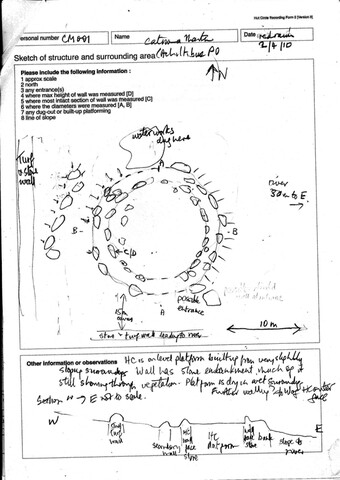 Hut Circle Recording Form 2 [Version 2]
Personal number CM001
Name
Date
2/4/10
Sketch of structure and surrounding area
N
Please include the following information :
1 approx scale
2 north
3 any entrance(s)
4 where max height of wall was measured [D]
5 where most intact section of wall was measured [C]
6 where the diameters were measured [A, B]
7 any dug-out or built-up platforming
8 line of slope
waterworks
dug here
Turf
&
stone
wall
A
river
30m to E.
B
B
C/D
A
possible
entrance
15m
stone & turf wall leading to river
10 m
Other information or observations HC is on level platform built up from very slightly
sloping surrounds. Wall has stone embankment much of it
still showing through vegetation. Platform is dry in wet surrounds
Further walling
Section W → E not to scale.
W
E
wall
secondary
wall
HC
wall
stone
HC
platform
wall
bank
stone
slope to
river